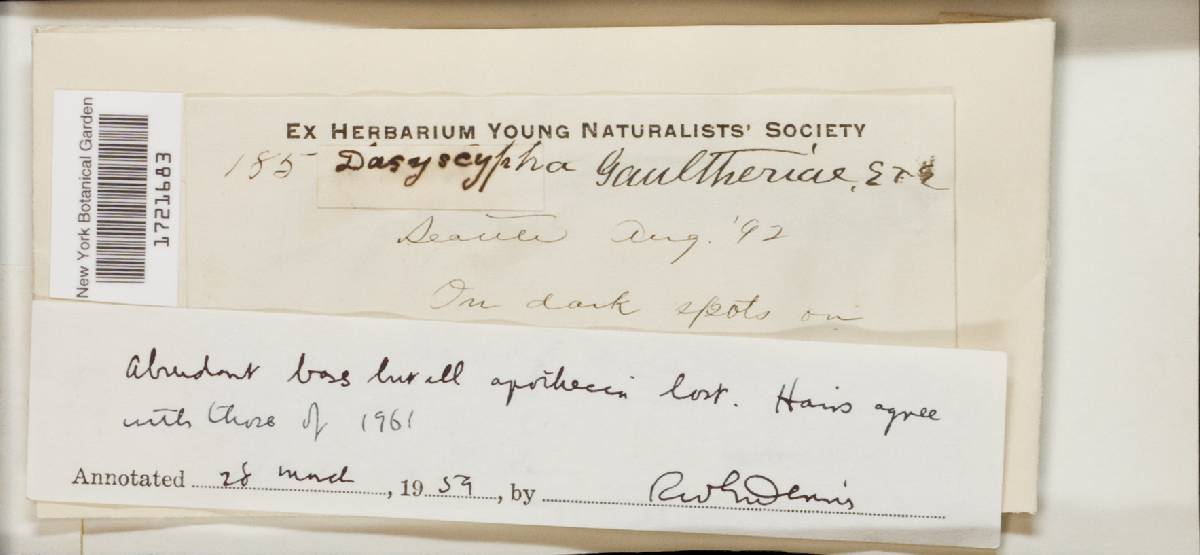 New York Botanical Garden
1721683
EX HERBARIUM YOUNG NATURALISTS' SOCIETY
185 Dasyscypha Gaultheriae, E & E
Seattle Aug. '92
On dark spots on
Abundant bases but all apothecia lost. Hairs agree
with those of 1961
Annotated 28 March, 1959, by RWG Dennis